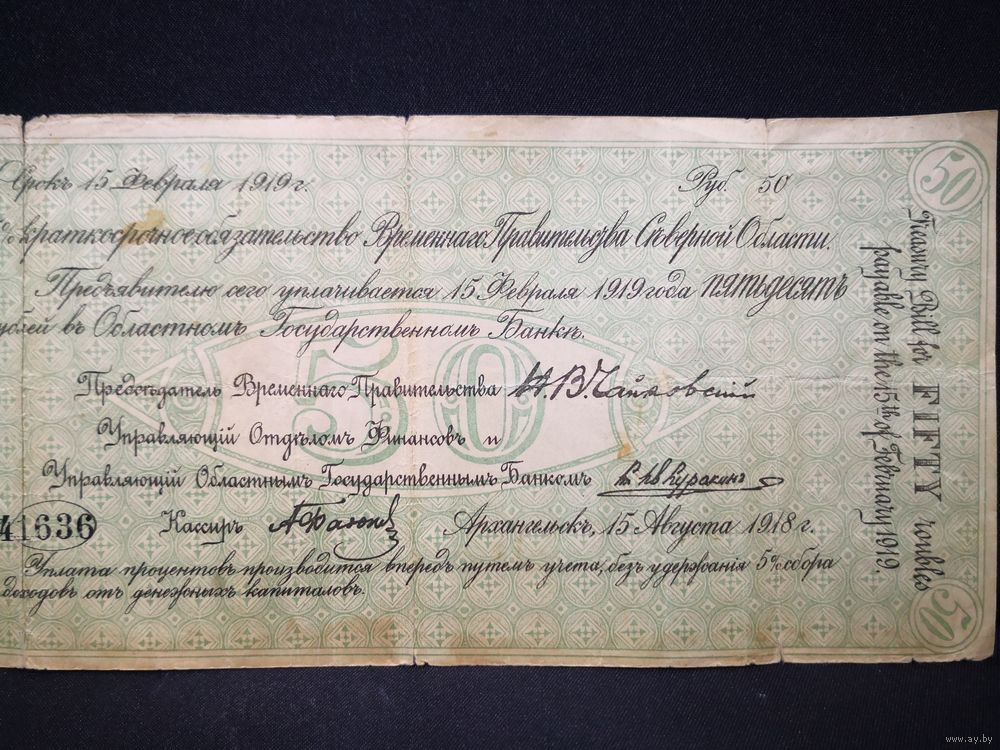 Срокъ 15 Февраля 1919 г. Руб. 50
% краткосрочное обязательство Временнаго Правительства Сѣверной Области.
Предъявителю сего уплачивается 15 Февраля 1919 года пятьдесятъ
рублей въ Областномъ Государственномъ Банкѣ.
50
Предсѣдатель Временнаго Правительства Н.В. Чайковскій
Управляющій Отдѣломъ Финансовъ и
Управляющій Областнымъ Государственнымъ Банкомъ Куракинъ
41636 Кассиръ Архангельскъ, 15 Августа 1918 г.
Уплата процентовъ производится впередъ путемъ учета, безъ удержания 5% сбора
доходовъ отъ денежныхъ капиталовъ.
50
Treasury Bill for FIFTY roubles
payable on the 15th of February 1919.
50
www.ay.by